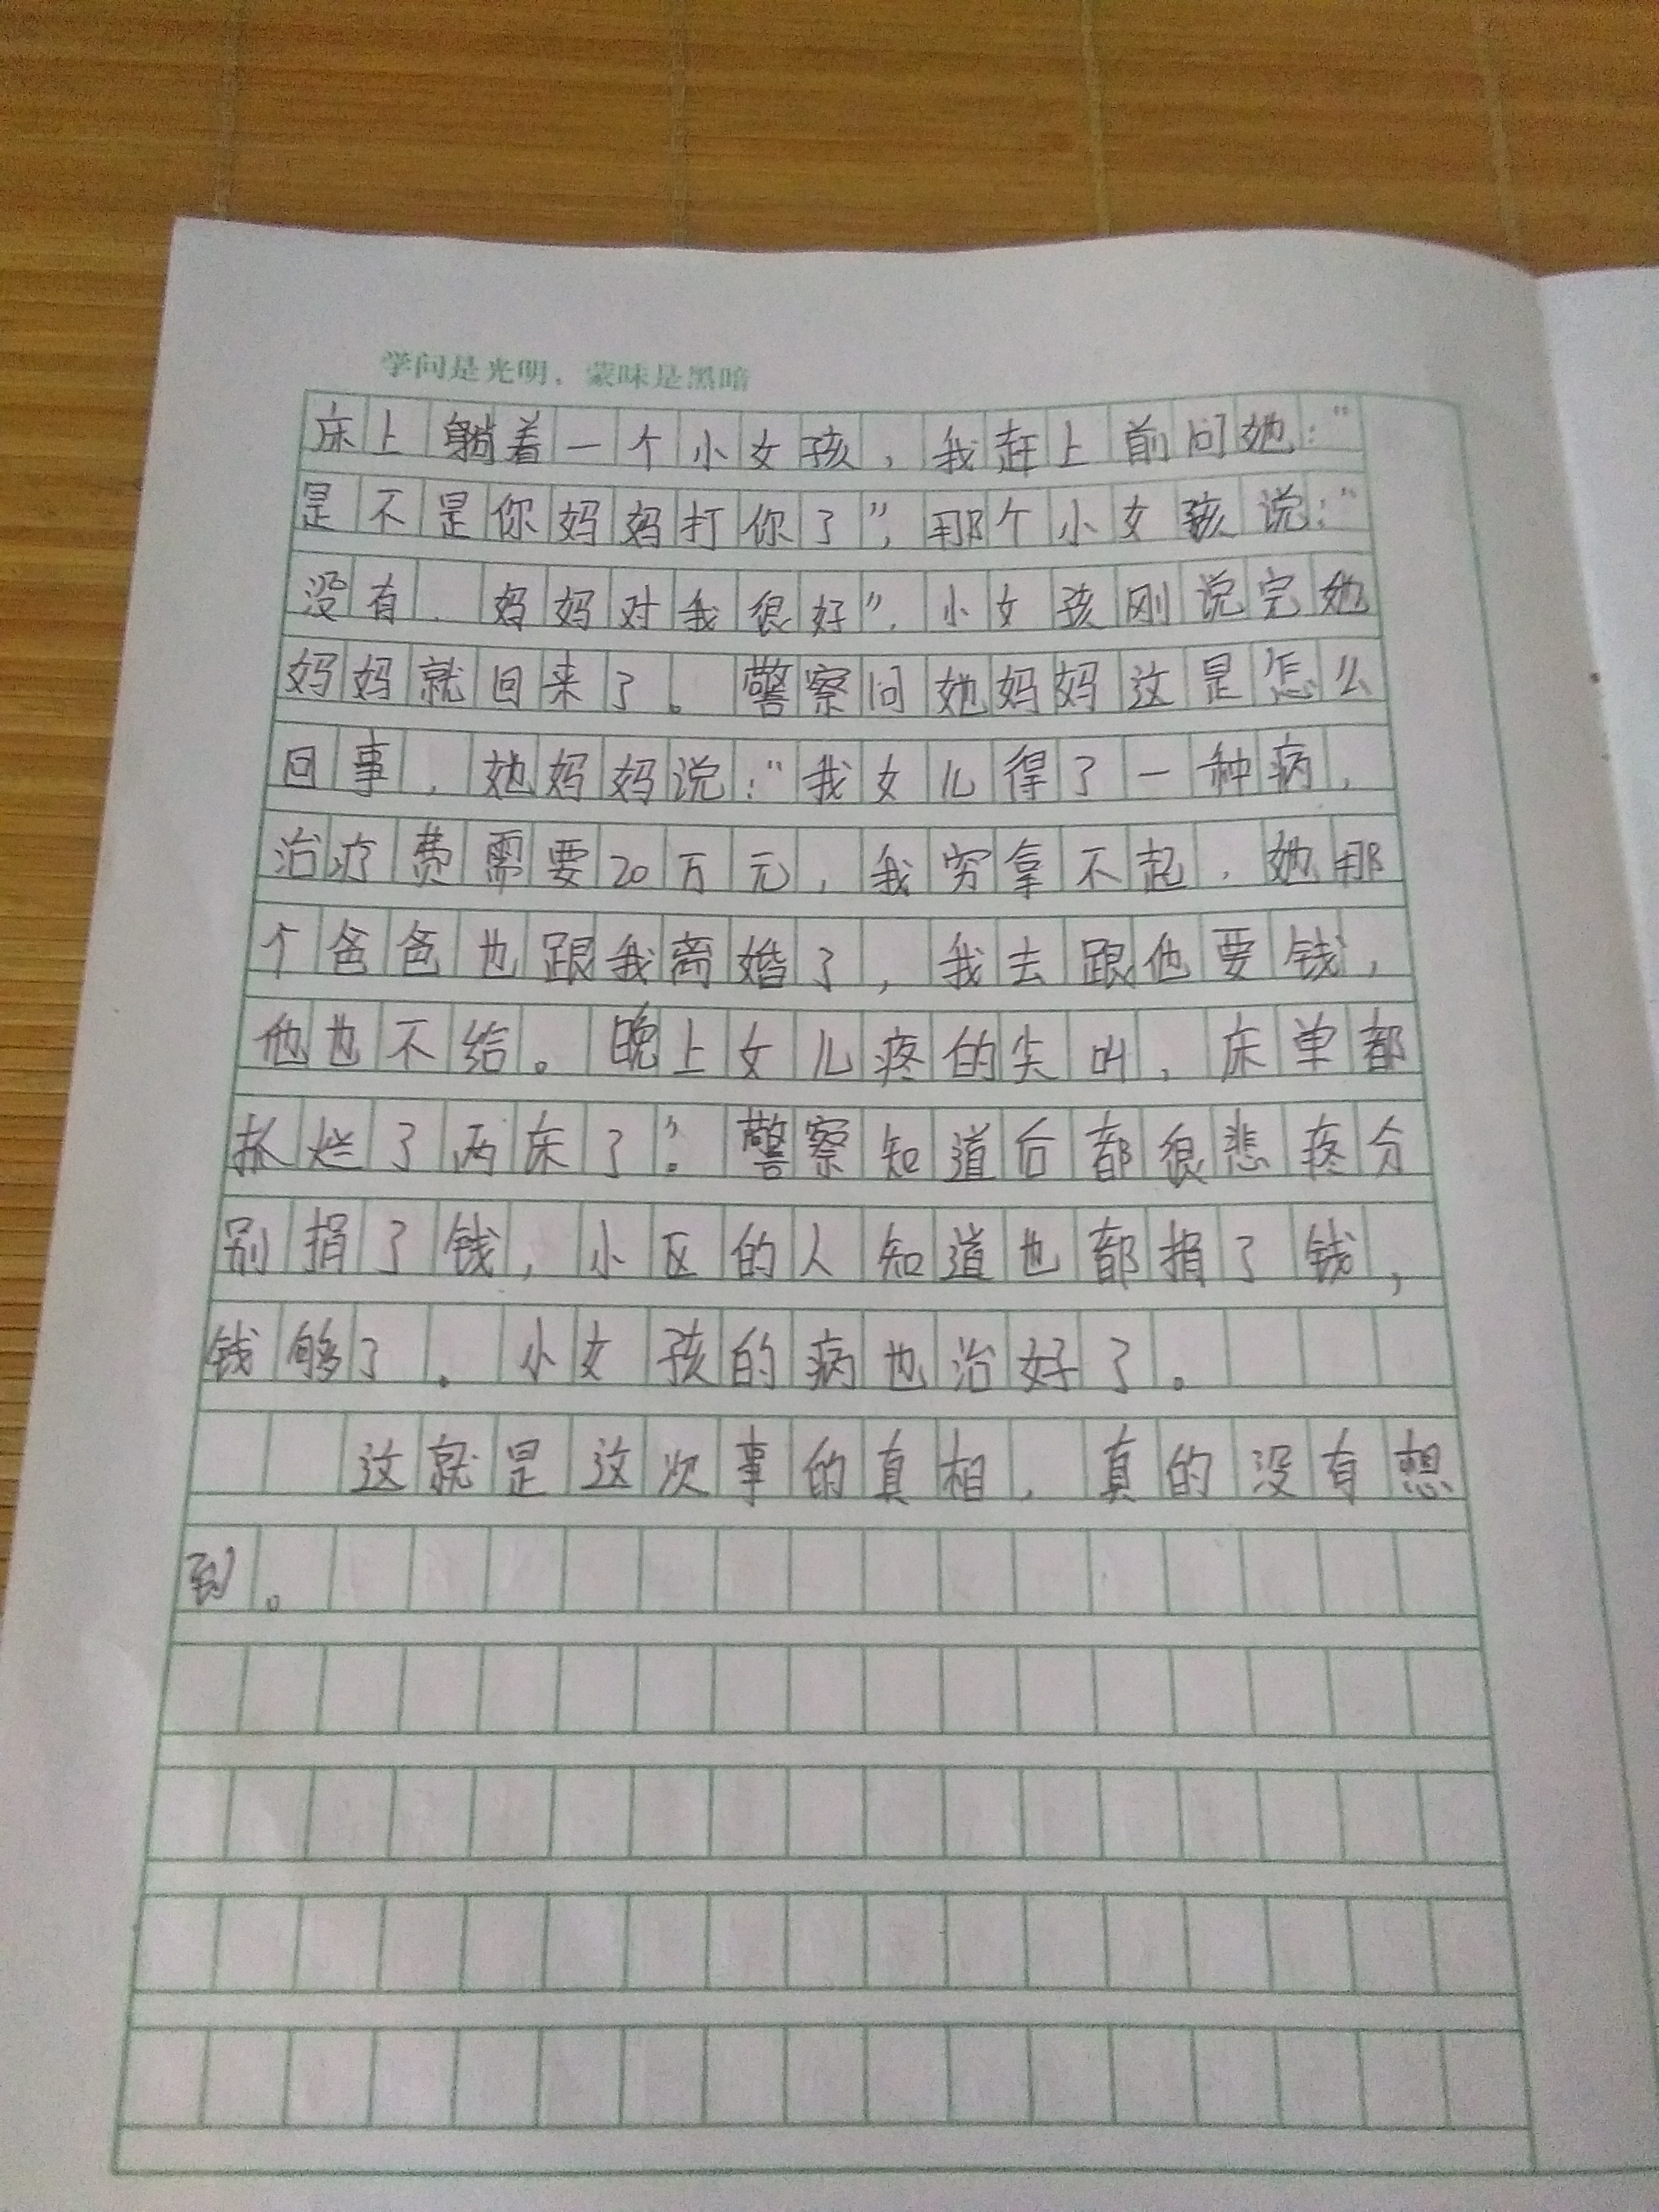 学问是光明，蒙昧是黑暗
床上躺着一个小女孩，我赶上前问她：“
是不是你妈妈打你了”，那个小女孩说：“
没有，妈妈对我很好”，小女孩刚说完她
妈妈就回来了。警察问她妈妈这是怎么
回事，她妈妈说：“我女儿得了一种病，
治疗费需要20万元，我穷拿不起，她那
个爸爸也跟我离婚了，我去跟他要钱，
他也不给。晚上女儿疼的尖叫，床单都
抓烂了两床了”。警察知道后都很悲疼分
别捐了钱，小区的人知道也都捐了钱，
钱够了。小女孩的病也治好了。
这就是这次事的真相，真的没有想
到。